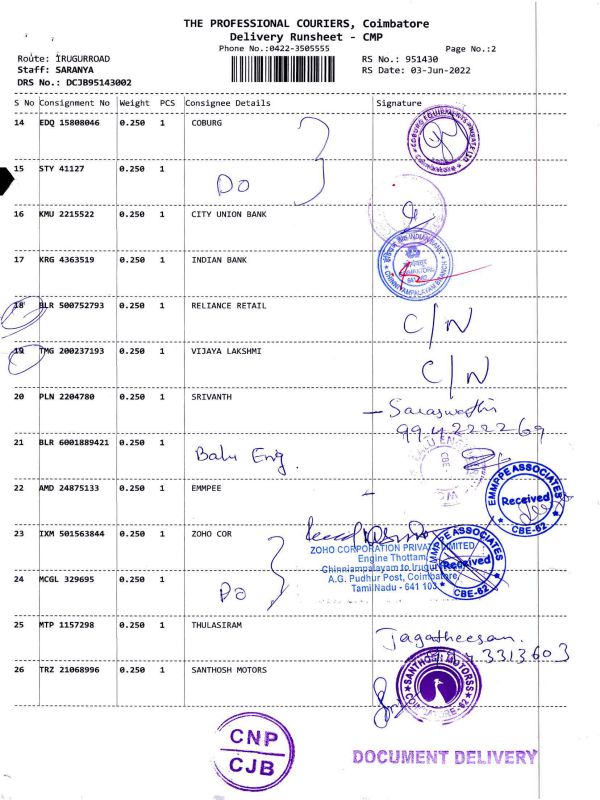 THE PROFESSIONAL COURIERS, Coimbatore
Delivery Runsheet - CMP
Phone No.:0422-3505555
Page No.:2
Route: IRUGURROAD
RS No.: 951430
Staff: SARANYA
RS Date: 03-Jun-2022
DRS No.: DCJB95143002
S No Consignment No Weight PCS Consignee Details Signature
14 EDQ 15808046 0.250 1 COBURG
COBURG EQUIPMENTS PRIVATE LTD
15 STY 41127 0.250 1
Do
16 KMU 2215522 0.250 1 CITY UNION BANK
17 KRG 4363519 0.250 1 INDIAN BANK
INDIAN BANK
CHINNIYAMPALAYAM BRANCH
18 BLR 500752793 0.250 1 RELIANCE RETAIL
C/N
19 TMG 200237193 0.250 1 VIJAYA LAKSHMI
C/N
20 PLN 2204780 0.250 1 SRIVANTH
Saraswathi
9942222269
21 BLR 6001889421 0.250 1
Balu Eng.
22 AMD 24875133 0.250 1 EMMPEE
EMMPPE ASSOCIATES
Received
CBE-62
23 IXM 501563844 0.250 1 ZOHO COR
ZOHO CORPORATION PRIVATE LIMITED
Engine Thottam
Chinniampalayam to Irugur
A.G. Pudhur Post, Coimbatore,
Tamil Nadu - 641 103
EMMPPE ASSOCIATES
Received
CBE-62
24 MCGL 329695 0.250 1
Do
25 MTP 1157298 0.250 1 THULASIRAM
Jagatheesan.
3313603
26 TRZ 21068996 0.250 1 SANTHOSH MOTORS
SANTHOSH MOTORSS
COIMBATORE-62
CNP
CJB
DOCUMENT DELIVERY